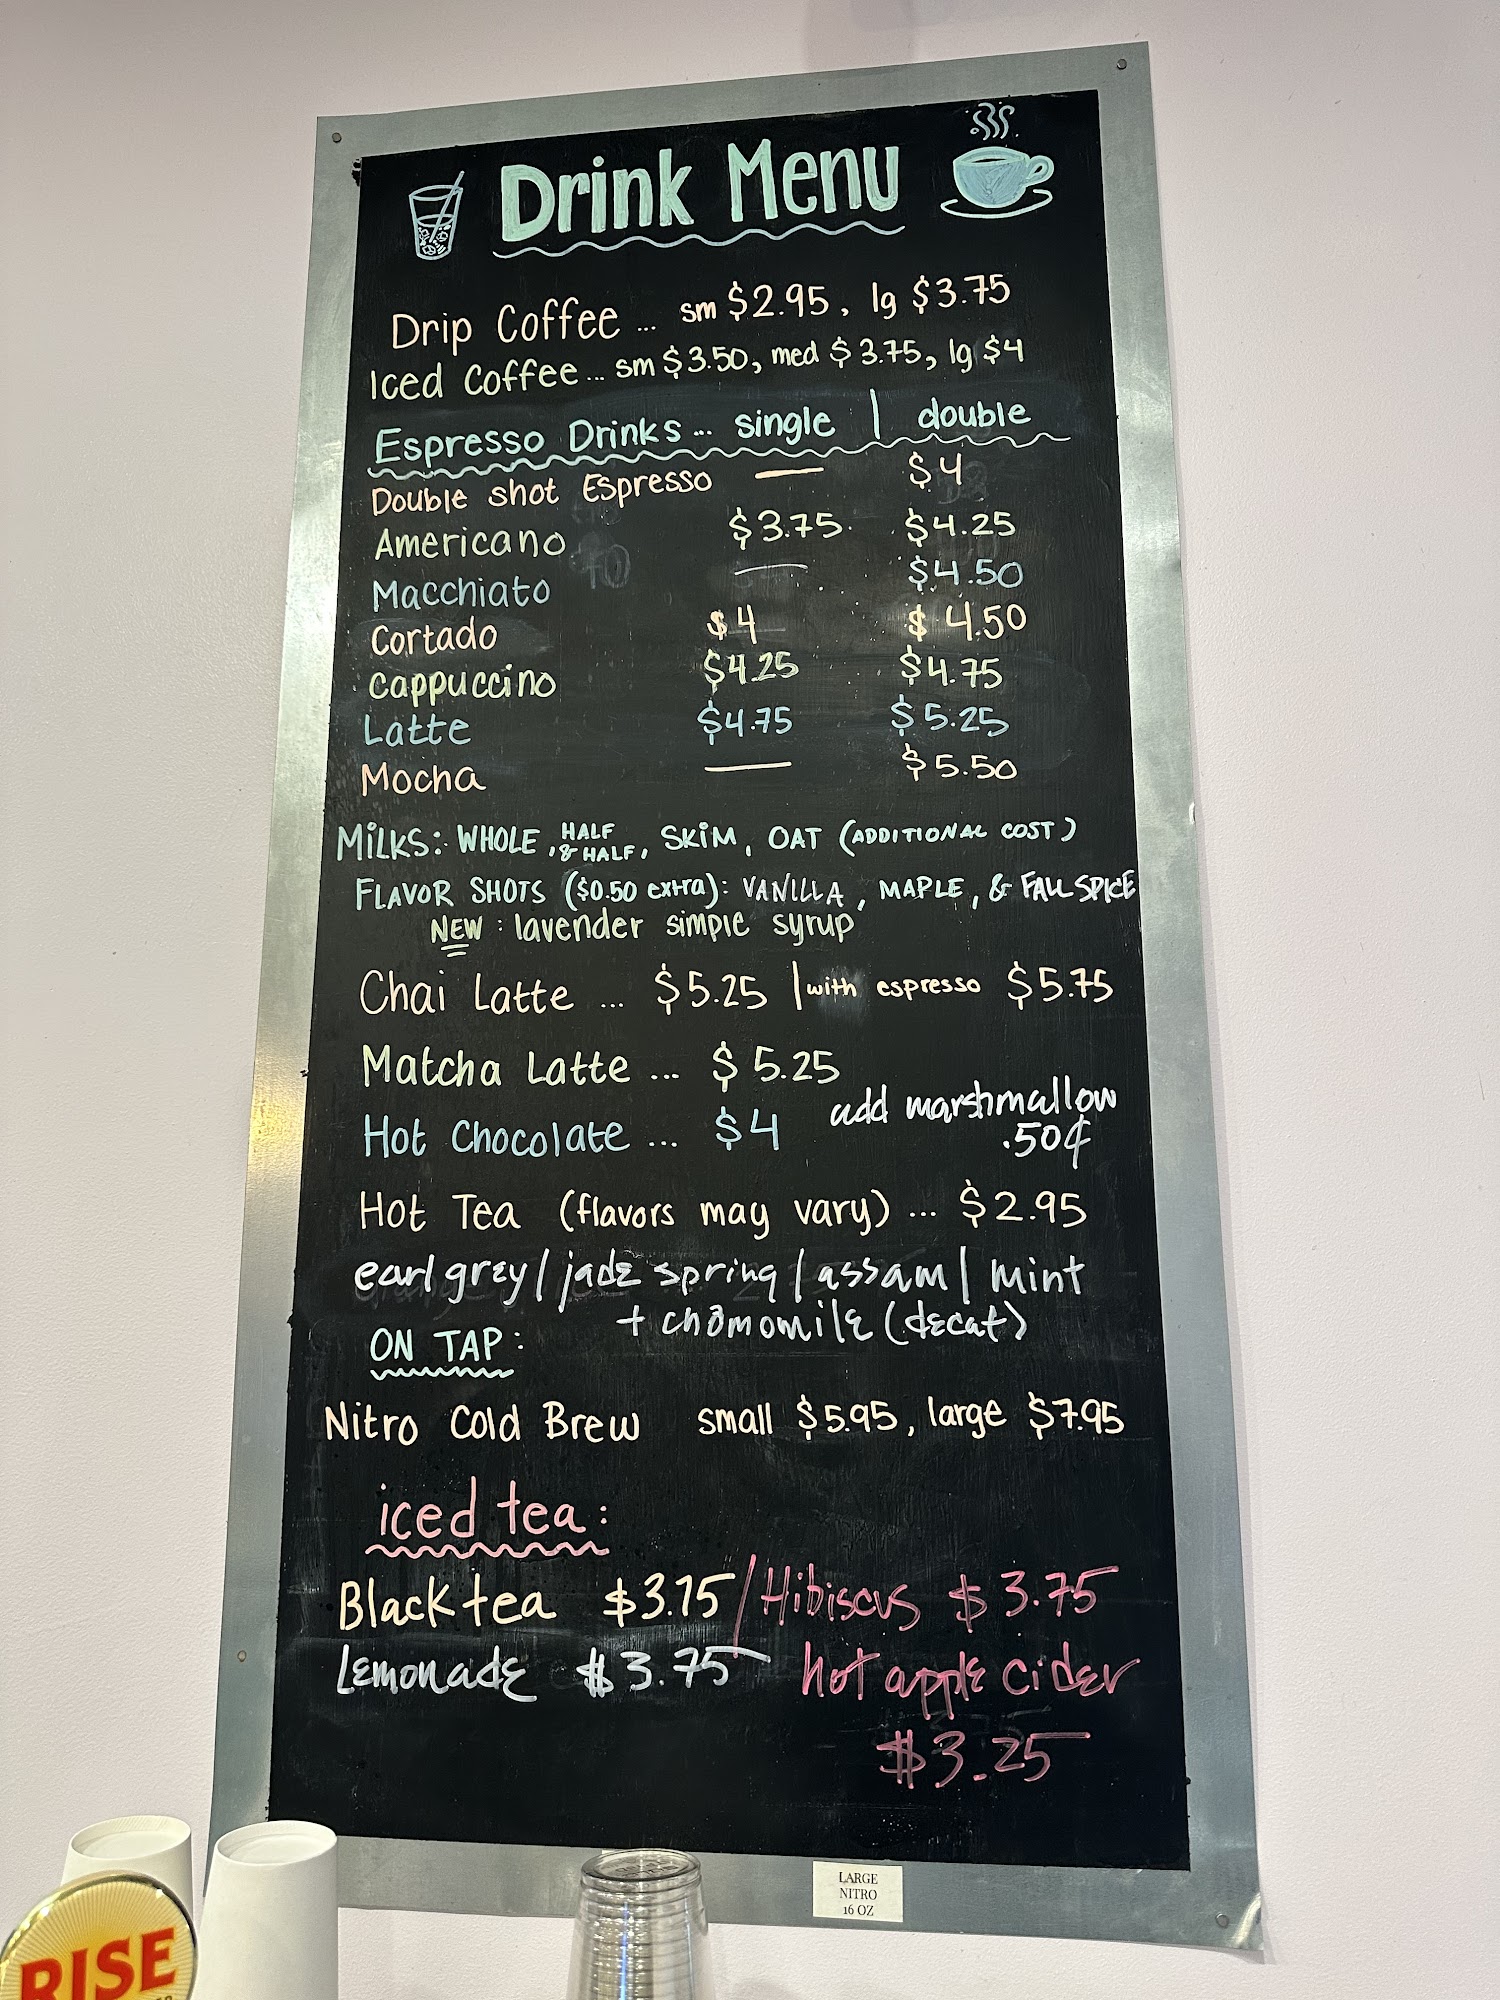 Drink Menu
Drip Coffee ... sm $2.95, lg $3.75
Iced Coffee ... sm $3.50, med $3.75, lg $4
Espresso Drinks ... single | double
Double shot Espresso — $4
Americano $3.75 $4.25
Macchiato — $4.50
Cortado $4 $4.50
Cappuccino $4.25 $4.75
Latte $4.75 $5.25
Mocha — $5.50
MILKS: WHOLE, HALF & HALF, SKIM, OAT (ADDITIONAL COST)
FLAVOR SHOTS ($0.50 extra): VANILLA, MAPLE, & FALL SPICE
NEW: lavender simple syrup
Chai Latte ... $5.25 | with espresso $5.75
Matcha Latte ... $5.25
Hot Chocolate ... $4 add marshmallow .50¢
Hot Tea (flavors may vary) ... $2.95
earl grey / jade spring / assam / mint
+ chamomile (decaf)
ON TAP:
Nitro Cold Brew small $5.95, large $7.95
iced tea:
Black tea $3.75 / Hibiscus $3.75
Lemonade $3.75 hot apple cider
$3.25
LARGE
NITRO
16 OZ
RISE